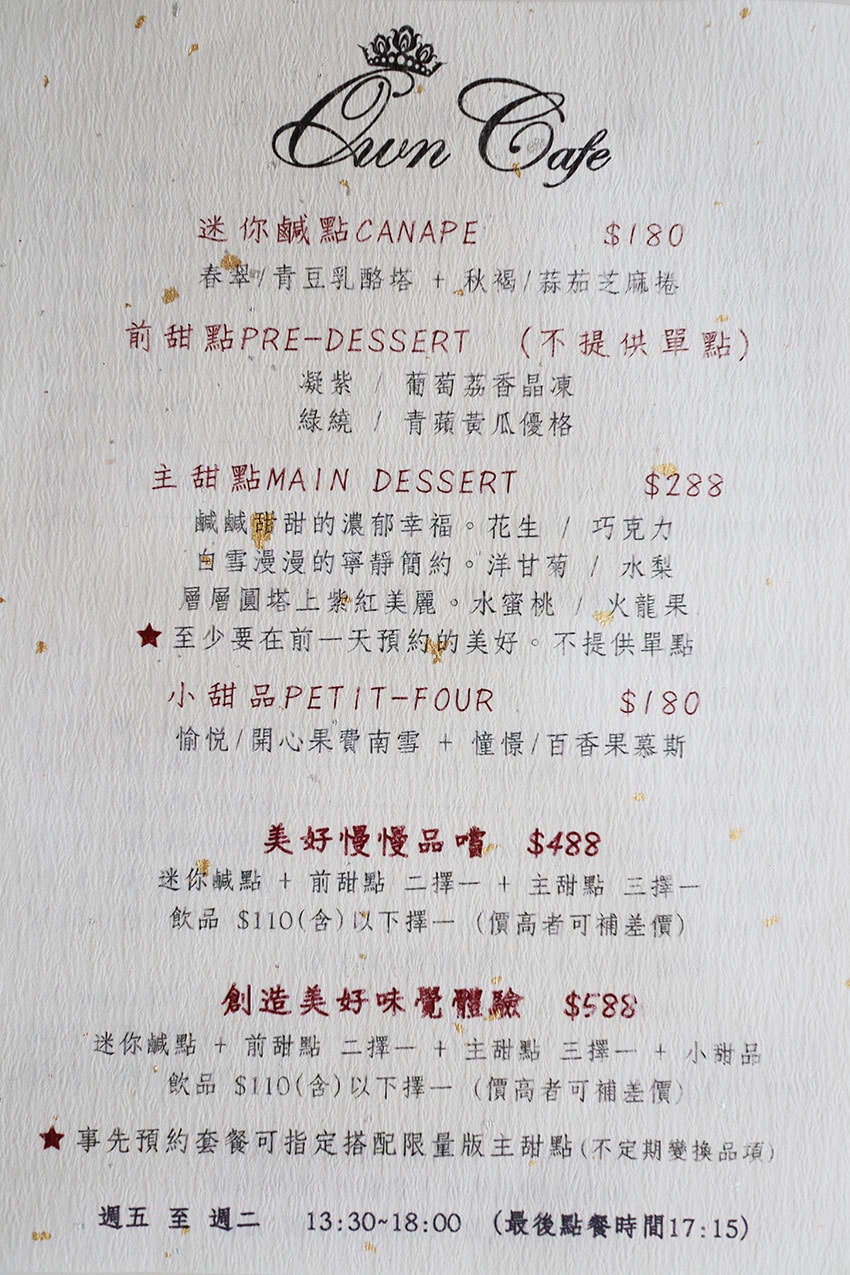 Own Cafe
迷你鹹點CANAPE $180
春翠/青豆乳酪塔 + 秋褐/蒜茄芝麻捲
前甜點PRE-DESSERT (不提供單點)
凝紫 / 葡萄荔香晶凍
綠繞 / 青蘋黃瓜優格
主甜點MAIN DESSERT $288
鹹鹹甜甜的濃郁幸福。花生 / 巧克力
白雪漫漫的寧靜簡約。洋甘菊 / 水梨
層層圓塔上紫紅美麗。水蜜桃 / 火龍果
★至少要在前一天預約的美好。不提供單點
小甜品PETIT-FOUR $180
愉悅/開心果費南雪 + 憧憬/百香果慕斯
美好慢慢品嚐 $488
迷你鹹點 + 前甜點 二擇一 + 主甜點 三擇一
飲品 $110(含)以下擇一 (價高者可補差價)
創造美好味覺體驗 $588
迷你鹹點 + 前甜點 二擇一 + 主甜點 三擇一 + 小甜品
飲品 $110(含)以下擇一 (價高者可補差價)
★事先預約套餐可指定搭配限量版主甜點(不定期變換品項)
週五 至 週二 13:30~18:00 (最後點餐時間17:15)